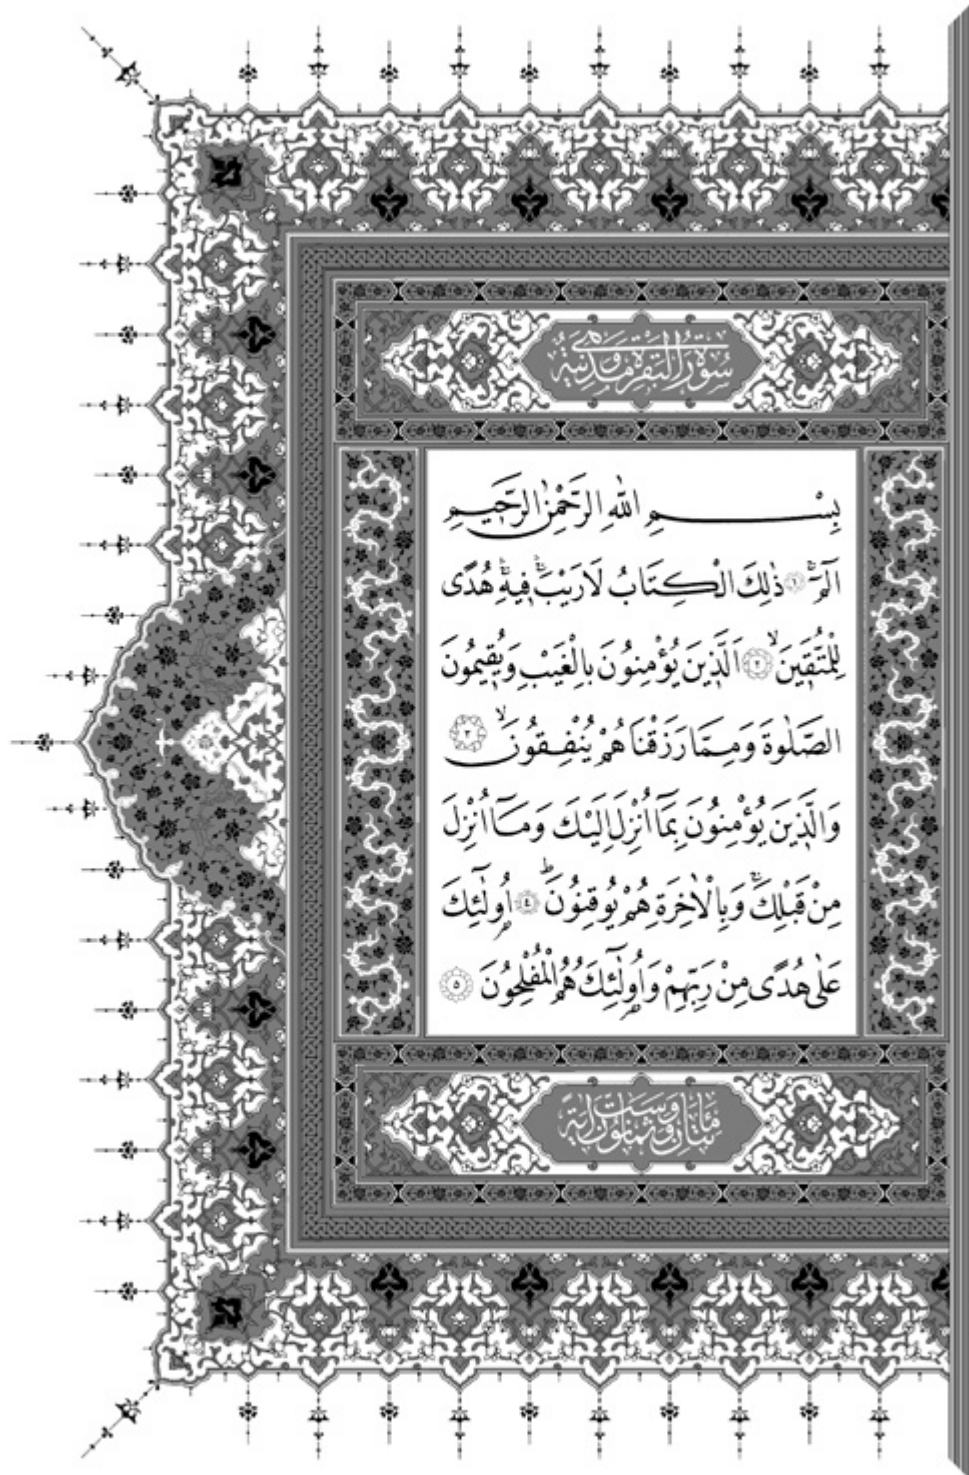 سُورَةُ الْبَقَرَةِ مَدَنِيَّةٌ وَهِيَ
بِسْمِ اللّٰهِ الرَّحْمٰنِ الرَّحِيمِ
الٓمٓ ۚ ﴿١﴾ ذٰلِكَ الْكِتَابُ لَا رَيْبَ ۛ فِيهِ ۛ هُدًى
لِلْمُتَّقِينَ ۙ ﴿٢﴾ اَلَّذِينَ يُؤْمِنُونَ بِالْغَيْبِ وَيُقِيمُونَ
الصَّلٰوةَ وَمِمَّا رَزَقْنَاهُمْ يُنْفِقُونَ ۙ ﴿٣﴾
وَالَّذِينَ يُؤْمِنُونَ بِمَٓا اُنْزِلَ اِلَيْكَ وَمَٓا اُنْزِلَ
مِنْ قَبْلِكَ ۚ وَبِالْاٰخِرَةِ هُمْ يُوقِنُونَ ۜ ﴿٤﴾ اُو۬لٰٓئِكَ
عَلٰى هُدًى مِنْ رَبِّهِمْ وَاُو۬لٰٓئِكَ هُمُ الْمُفْلِحُونَ ﴿٥﴾
مِائَتَانِ وَسِتٌّ وَثَمَانُونَ اٰيَةً